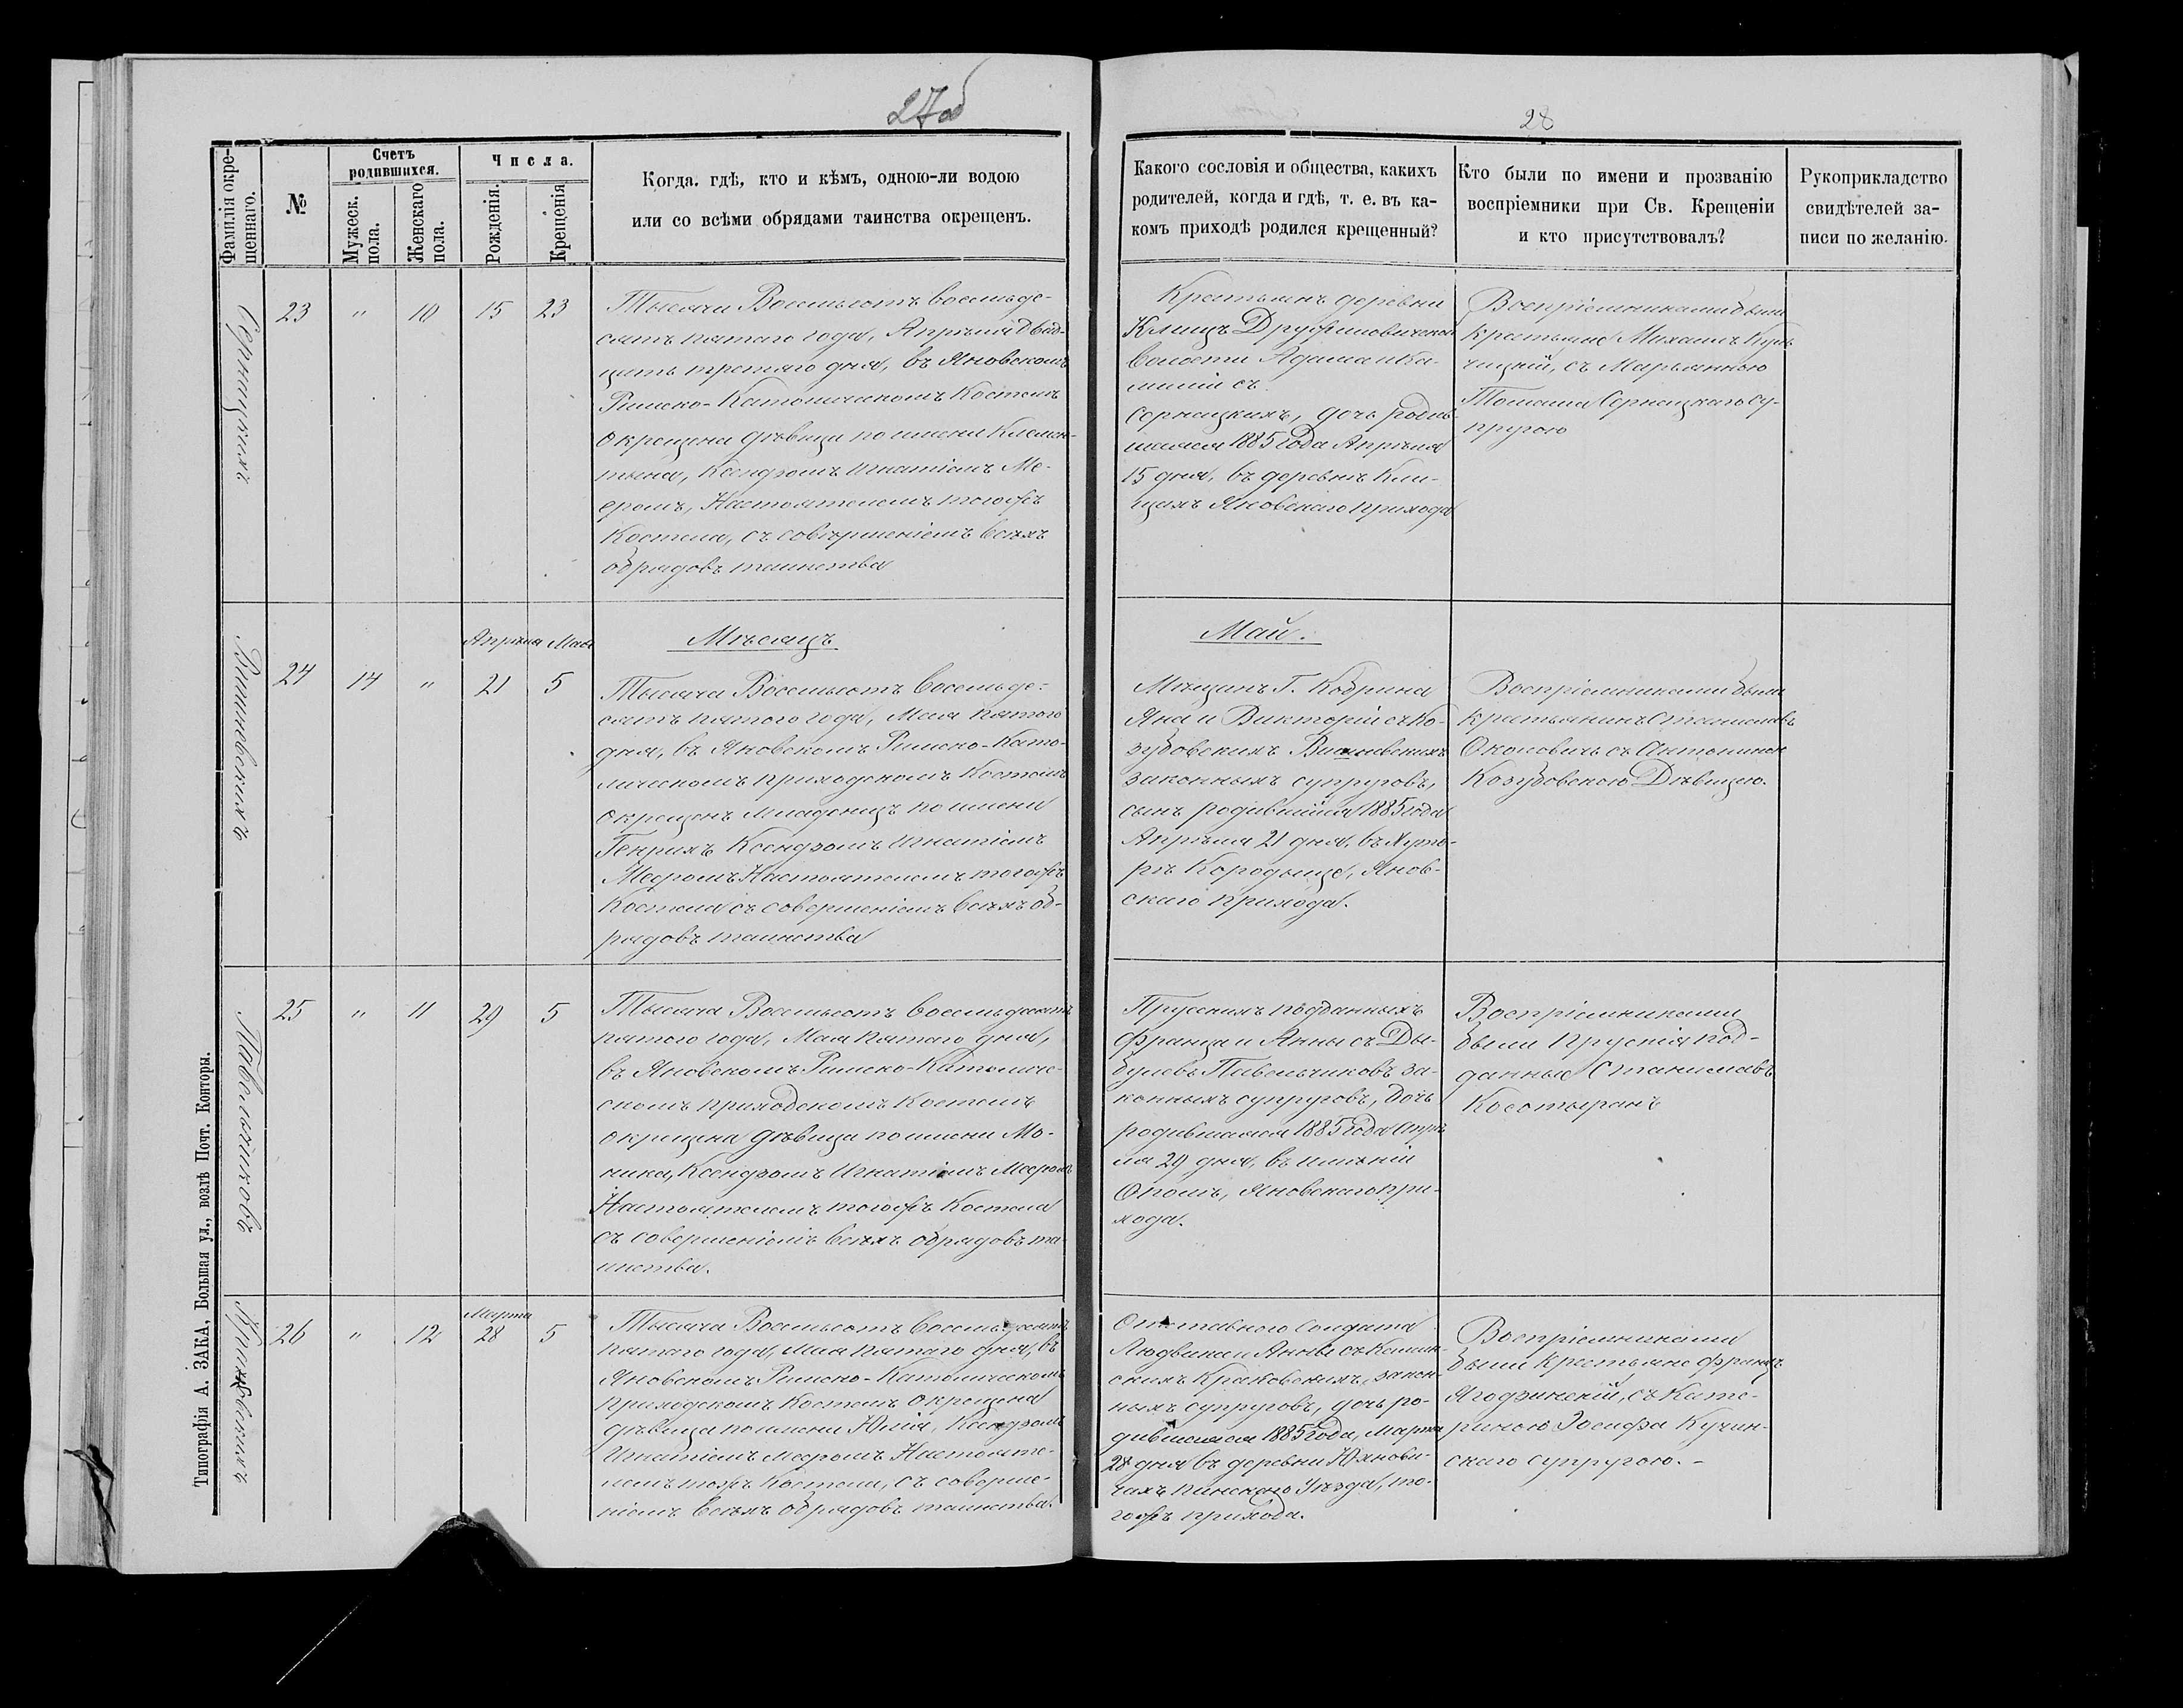 27об
28
Фамилія окре-
щеннаго.
№
Счетъ
родившихся.
Мужеск.
пола.
Женскаго
пола.
Числа.
Рожденія.
Крещенія
Когда. гдѣ, кто и кѣмъ, одною-ли водою
или со всѣми обрядами таинства окрещенъ.
Какого сословія и общества, какихъ
родителей, когда и гдѣ, т. е. въ ка-
комъ приходѣ родился крещенный?
Кто были по имени и прозванію
воспріемники при Св. Крещеніи
и кто присутствовалъ?
Рукоприкладство
свидѣтелей за-
писи по желанію.
Сернацкихъ
23 " 10 15 23
Тысяча Восемьсотъ восемьде-
сятъ пятого года, Апрѣля двад-
цать третяго дня, въ Яновскомъ
Римско-Католическомъ Костелѣ
окрещена дѣвица по имени Клемен-
тына, Ксендзомъ Игнатіемъ Ме-
еромъ, Настоятелемъ тогожъ
Костела, съ совершеніемъ всѣхъ
обрядовъ таинства
Крестьянъ деревни
Клищъ Дружиловичской
Волости Адама и Ка-
миліи съ
Сернацкихъ, дочь родив-
шаяся 1885 года Апрѣля
15 дня, въ деревнѣ Кли-
щахъ Яновскаго прихода
Воспріемниками были
крестьяне Михаилъ Куль-
чицкій, съ Марьянною
Томаша Сернацкаго су-
пругою
Апрѣля Мая
Мѣсяцъ
Май.
Вишневскихъ
24 14 " 21 5
Тысяча Восемьсотъ восемьде-
сятъ пятого года, Мая пятого
дня, въ Яновскомъ Римско-Като-
лическомъ приходскомъ Костелѣ
окрещенъ младенецъ по имени
Генрихъ Ксендзомъ Игнатіемъ
Меромъ Настоятелемъ тогожъ
Костела съ совершеніемъ всѣхъ об-
рядовъ таинства
Мѣщанъ Г. Кобрина
Яна и Викторіи съ Ко-
зубовскихъ Вишневскихъ
законныхъ супруговъ,
сынъ родившійся 1885 года
Апрѣля 21 дня, въ Хуто-
рѣ Кородыще, Янов-
скаго прихода.
Воспріемниками были
крестьянинъ Станиславъ
Окоповичъ съ Антониною
Козубовскою Дѣвицею.
Павельчиковъ
25 " 11 29 5
Тысяча Восемьсотъ восемьдесятъ
пятого года, Мая пятаго дня,
въ Яновскомъ Римско-Католиче-
скомъ приходскомъ Костелѣ
окрещена дѣвица по имени Мо-
ника, Ксендзомъ Игнатіемъ Меером
Настоятелемъ тогожъ Костела
съ совершеніемъ всѣхъ обрядовъ та-
инства.
Прусскихъ подданныхъ
Франца и Анны съ Ды-
булевъ Павельчиковъ за-
конныхъ супруговъ, дочь
родившаяся 1885 года Апрѣ-
ля 29 дня, въ имѣніи
Ополѣ, Яновскаго при-
хода.
Воспріемниками
были Прускія под-
данные Станиславъ
Косотыранъ
Краковскихъ
26 " 12 Марта
28 5
Тысяча Восемьсотъ восемьдесятъ
пятаго года, Мая пятого дня, въ
Яновскомъ Римско-Католическомъ
приходскомъ Костелѣ окрещена
дѣвица по имени Юлія, Ксендзомъ
Игнатіемъ Меромъ Настояте-
лемъ тогожъ Костела, съ соверше-
ніемъ всѣхъ обрядовъ таинства.
Отставного Солдата
Людвика и Анны съ Камин-
скихъ Краковскихъ, закон-
ныхъ супруговъ, дочь ро-
дившаяся 1885 года, Марта
28 дня въ деревни Юхнови-
чахъ Пинскаго Уѣзда, то-
гожъ прихода.
Воспріемниками
были Крестьяне Францъ
Ягодзинскій, съ Кате-
риною Іосифа Кучин-
скаго супругою. -
Типографія А. ЗАКА, Большая ул., возлѣ Почт. Конторы.